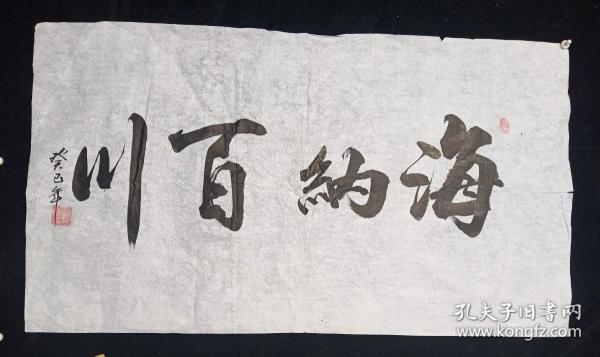 海納百川
癸巳年
孔夫子旧書网
www.kongfz.com